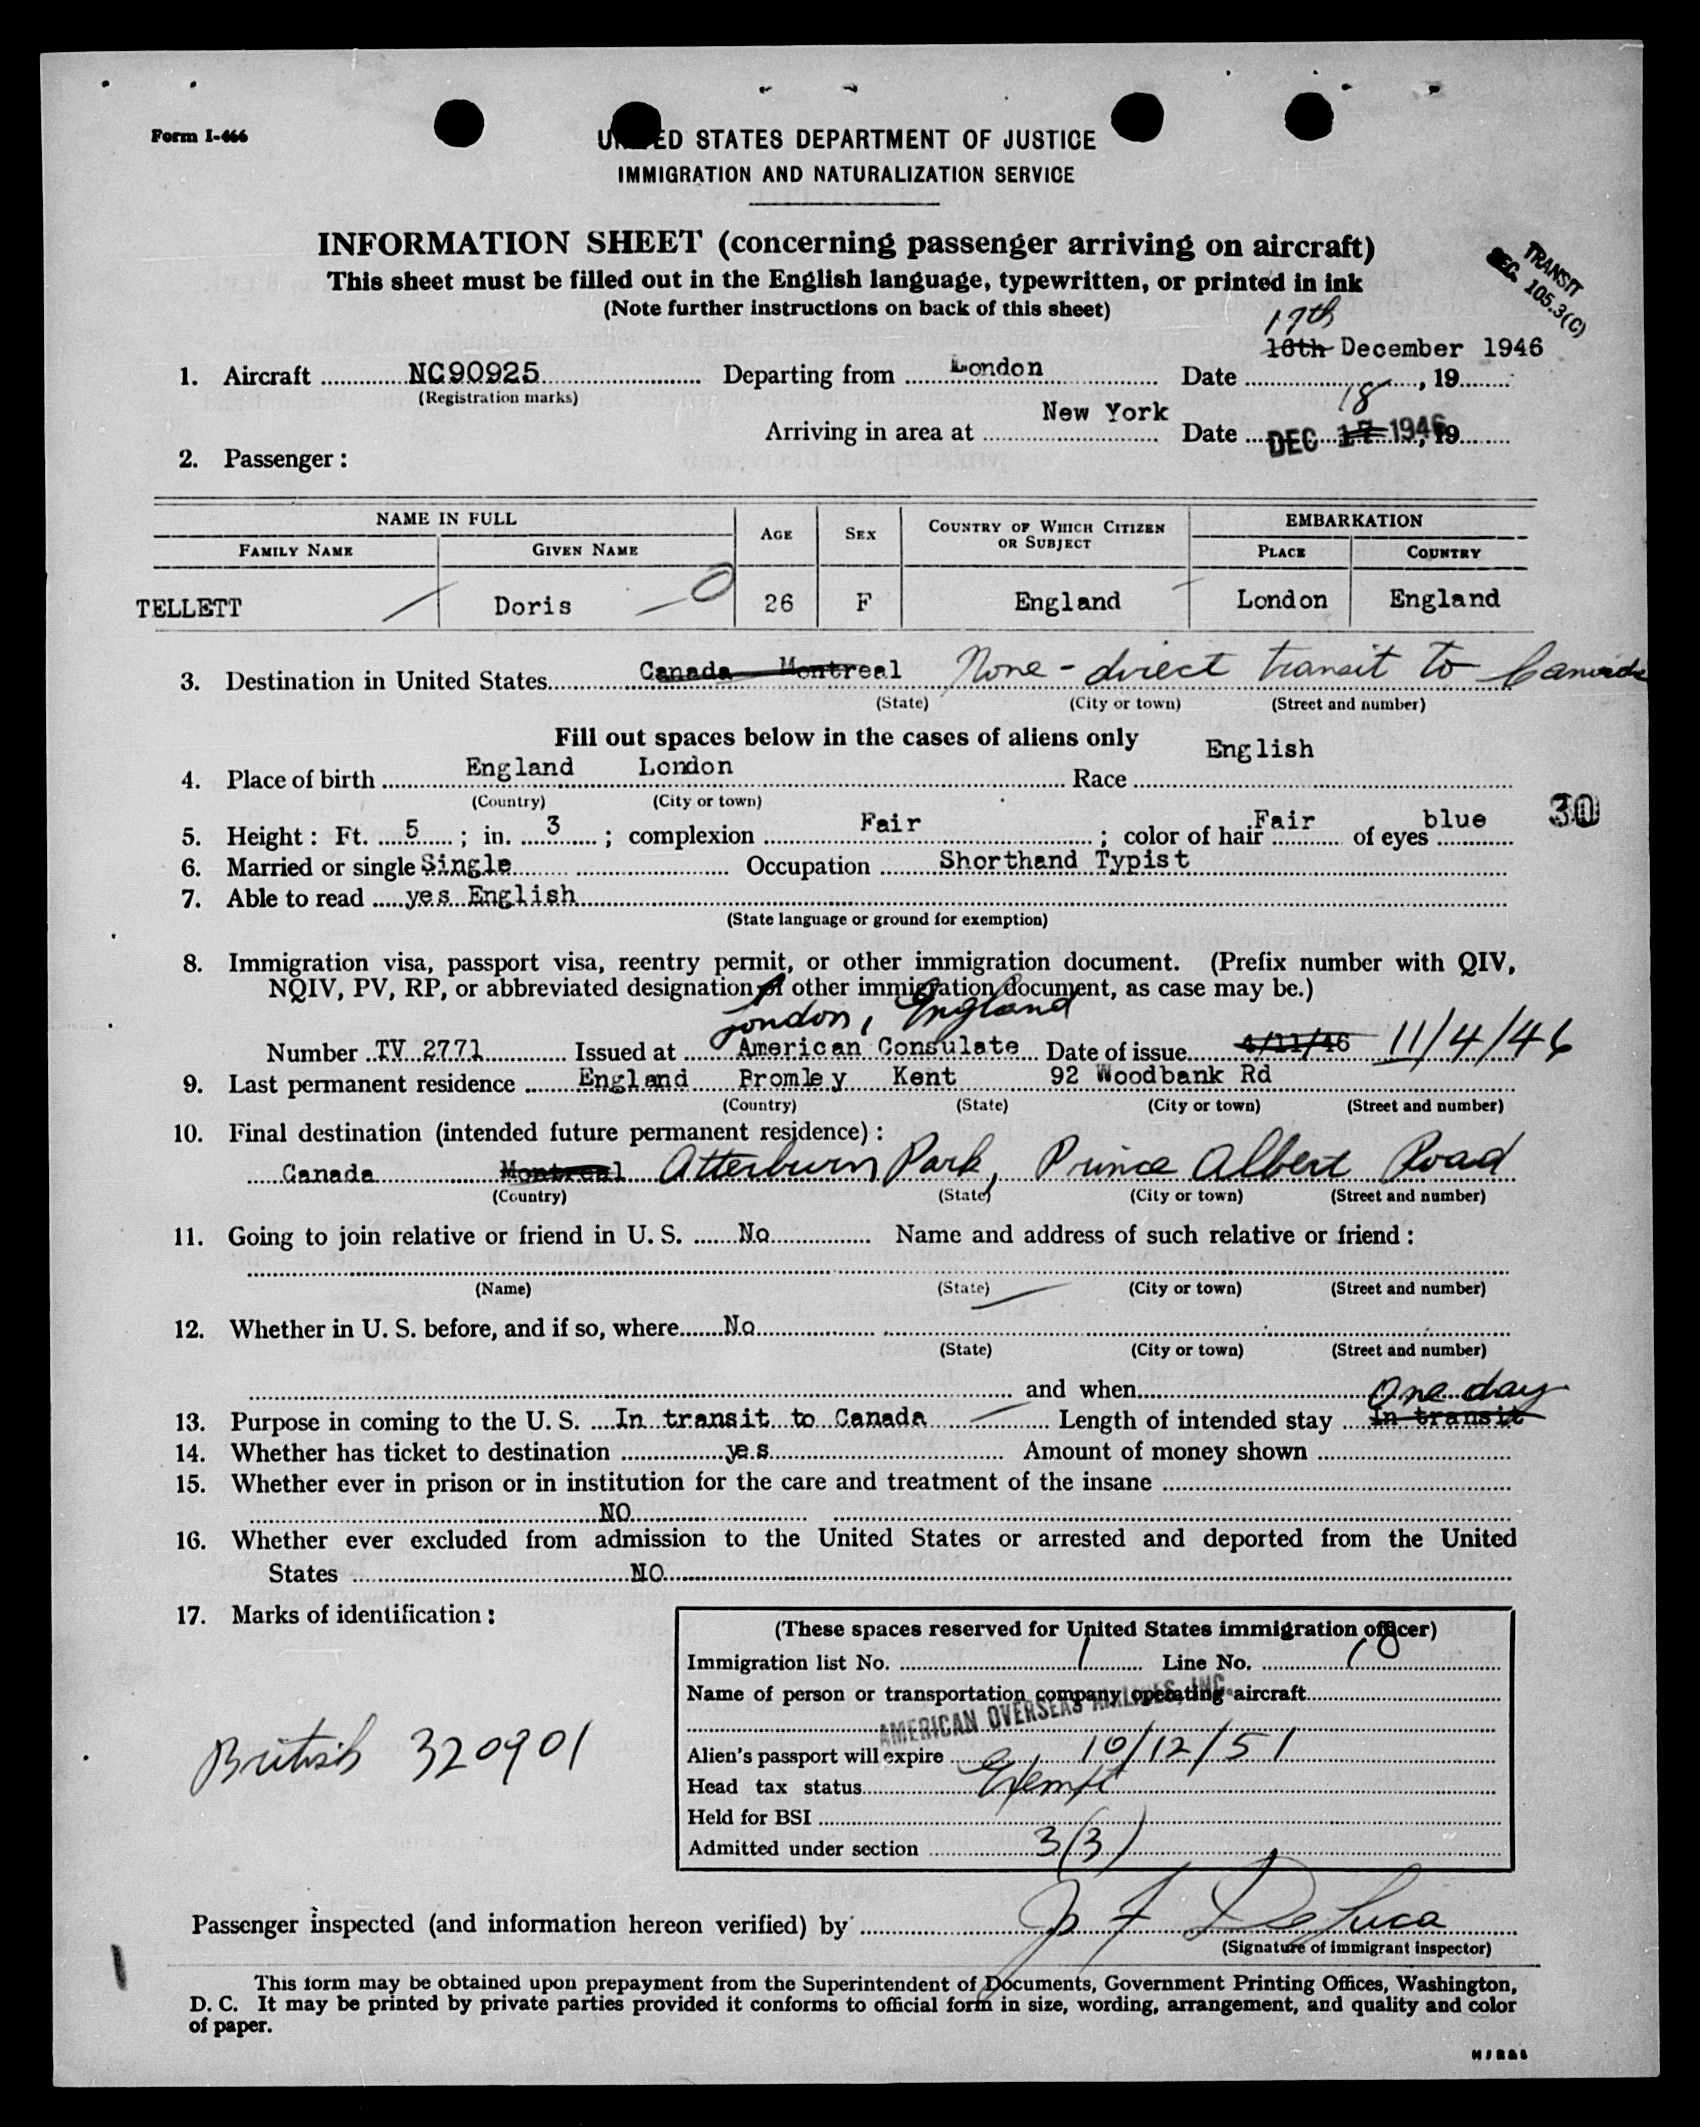 Form I-466
UNITED STATES DEPARTMENT OF JUSTICE
IMMIGRATION AND NATURALIZATION SERVICE
INFORMATION SHEET (concerning passenger arriving on aircraft)
This sheet must be filled out in the English language, typewritten, or printed in ink
(Note further instructions on back of this sheet)
TRANSIT
SEC. 105.3(C)
17th
1. Aircraft NC90925 Departing from London Date 16th December 1946, 19
(Registration marks)
18
Arriving in area at New York Date DEC 17 1946, 19
2. Passenger:
NAME IN FULL AGE SEX COUNTRY OF WHICH CITIZEN OR SUBJECT EMBARKATION
FAMILY NAME GIVEN NAME PLACE COUNTRY
TELLETT Doris 26 F England London England
3. Destination in United States Canada Montreal None - direct transit to Canada
(State) (City or town) (Street and number)
Fill out spaces below in the cases of aliens only
4. Place of birth England London Race English
(Country) (City or town)
30
5. Height: Ft. 5; in. 3; complexion Fair; color of hair Fair of eyes blue
6. Married or single Single Occupation Shorthand Typist
7. Able to read yes English
(State language or ground for exemption)
8. Immigration visa, passport visa, reentry permit, or other immigration document. (Prefix number with QIV,
NQIV, PV, RP, or abbreviated designation of other immigration document, as case may be.)
London, England
Number TV 2771 Issued at American Consulate Date of issue 4/11/46 11/4/46
9. Last permanent residence England Bromley Kent 92 Woodbank Rd
(Country) (State) (City or town) (Street and number)
10. Final destination (intended future permanent residence):
Canada Montreal Atterburn Park, Prince Albert Road
(Country) (State) (City or town) (Street and number)
11. Going to join relative or friend in U. S. No Name and address of such relative or friend:
(Name) (State) (City or town) (Street and number)
12. Whether in U. S. before, and if so, where No
(State) (City or town) (Street and number)
and when
One day
13. Purpose in coming to the U. S. In transit to Canada Length of intended stay In transit
14. Whether has ticket to destination yes Amount of money shown
15. Whether ever in prison or in institution for the care and treatment of the insane
NO
16. Whether ever excluded from admission to the United States or arrested and deported from the United
States NO
17. Marks of identification:
British 320901
(These spaces reserved for United States immigration officer)
Immigration list No. 1 Line No. 18
Name of person or transportation company operating aircraft
AMERICAN OVERSEAS AIRLINES, INC.
Alien's passport will expire 10/12/51
Head tax status Exempt
Held for BSI
Admitted under section 3(3)
Passenger inspected (and information hereon verified) by J F DeLuca
(Signature of immigrant inspector)
This form may be obtained upon prepayment from the Superintendent of Documents, Government Printing Offices, Washington,
D. C. It may be printed by private parties provided it conforms to official form in size, wording, arrangement, and quality and color
of paper.